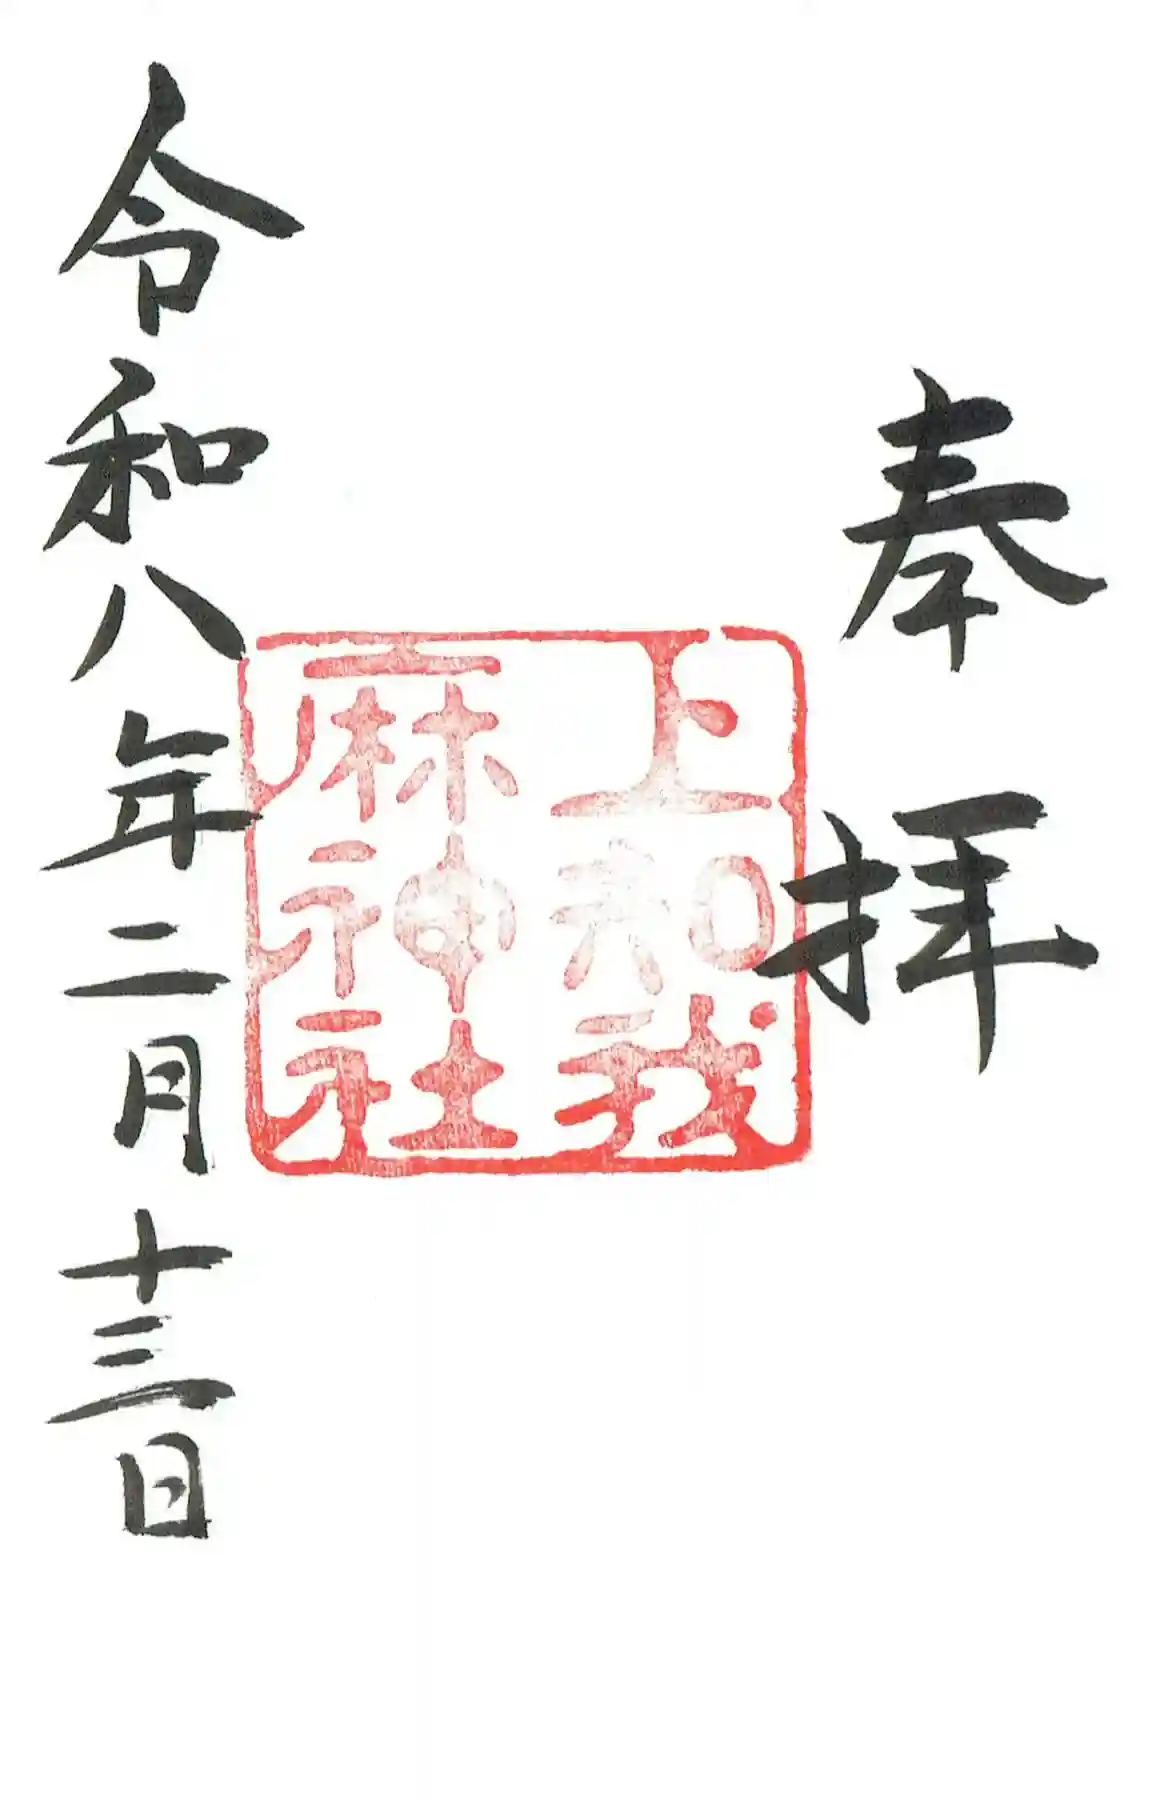 奉拝
上知我
麻神社
令和八年二月十三日